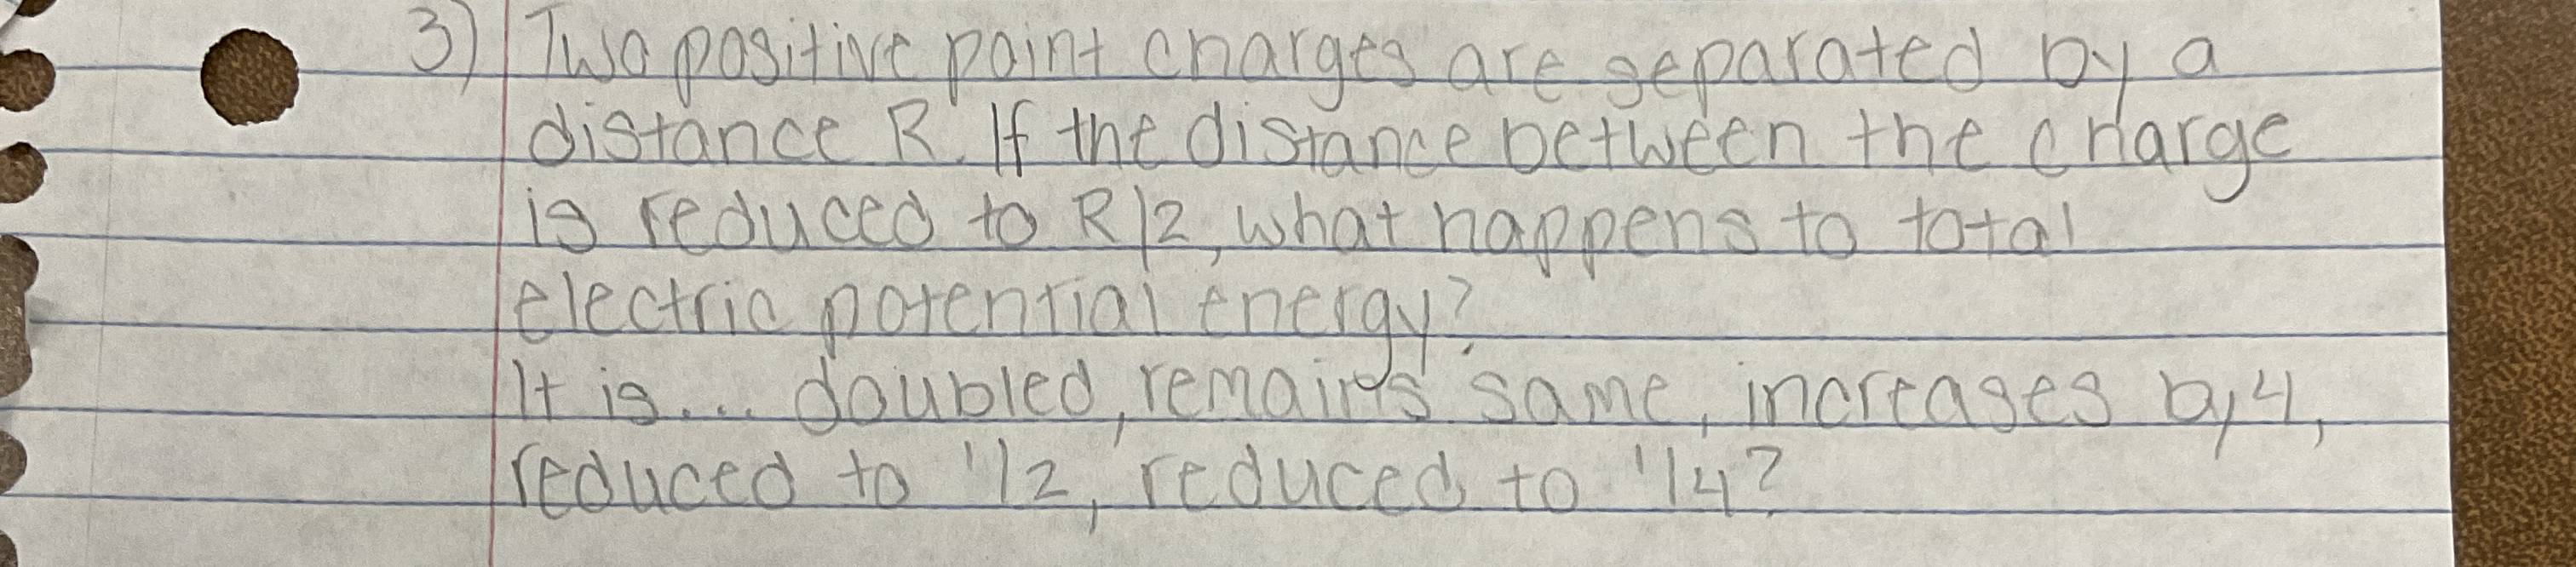 3) Two positive point charges are separated by a
distance R. If the distance between the charge
is reduced to R/2, what happens to total
electric potential energy?
It is... doubled, remains same, increases by 4,
reduced to 1/2, reduced to 1/4?